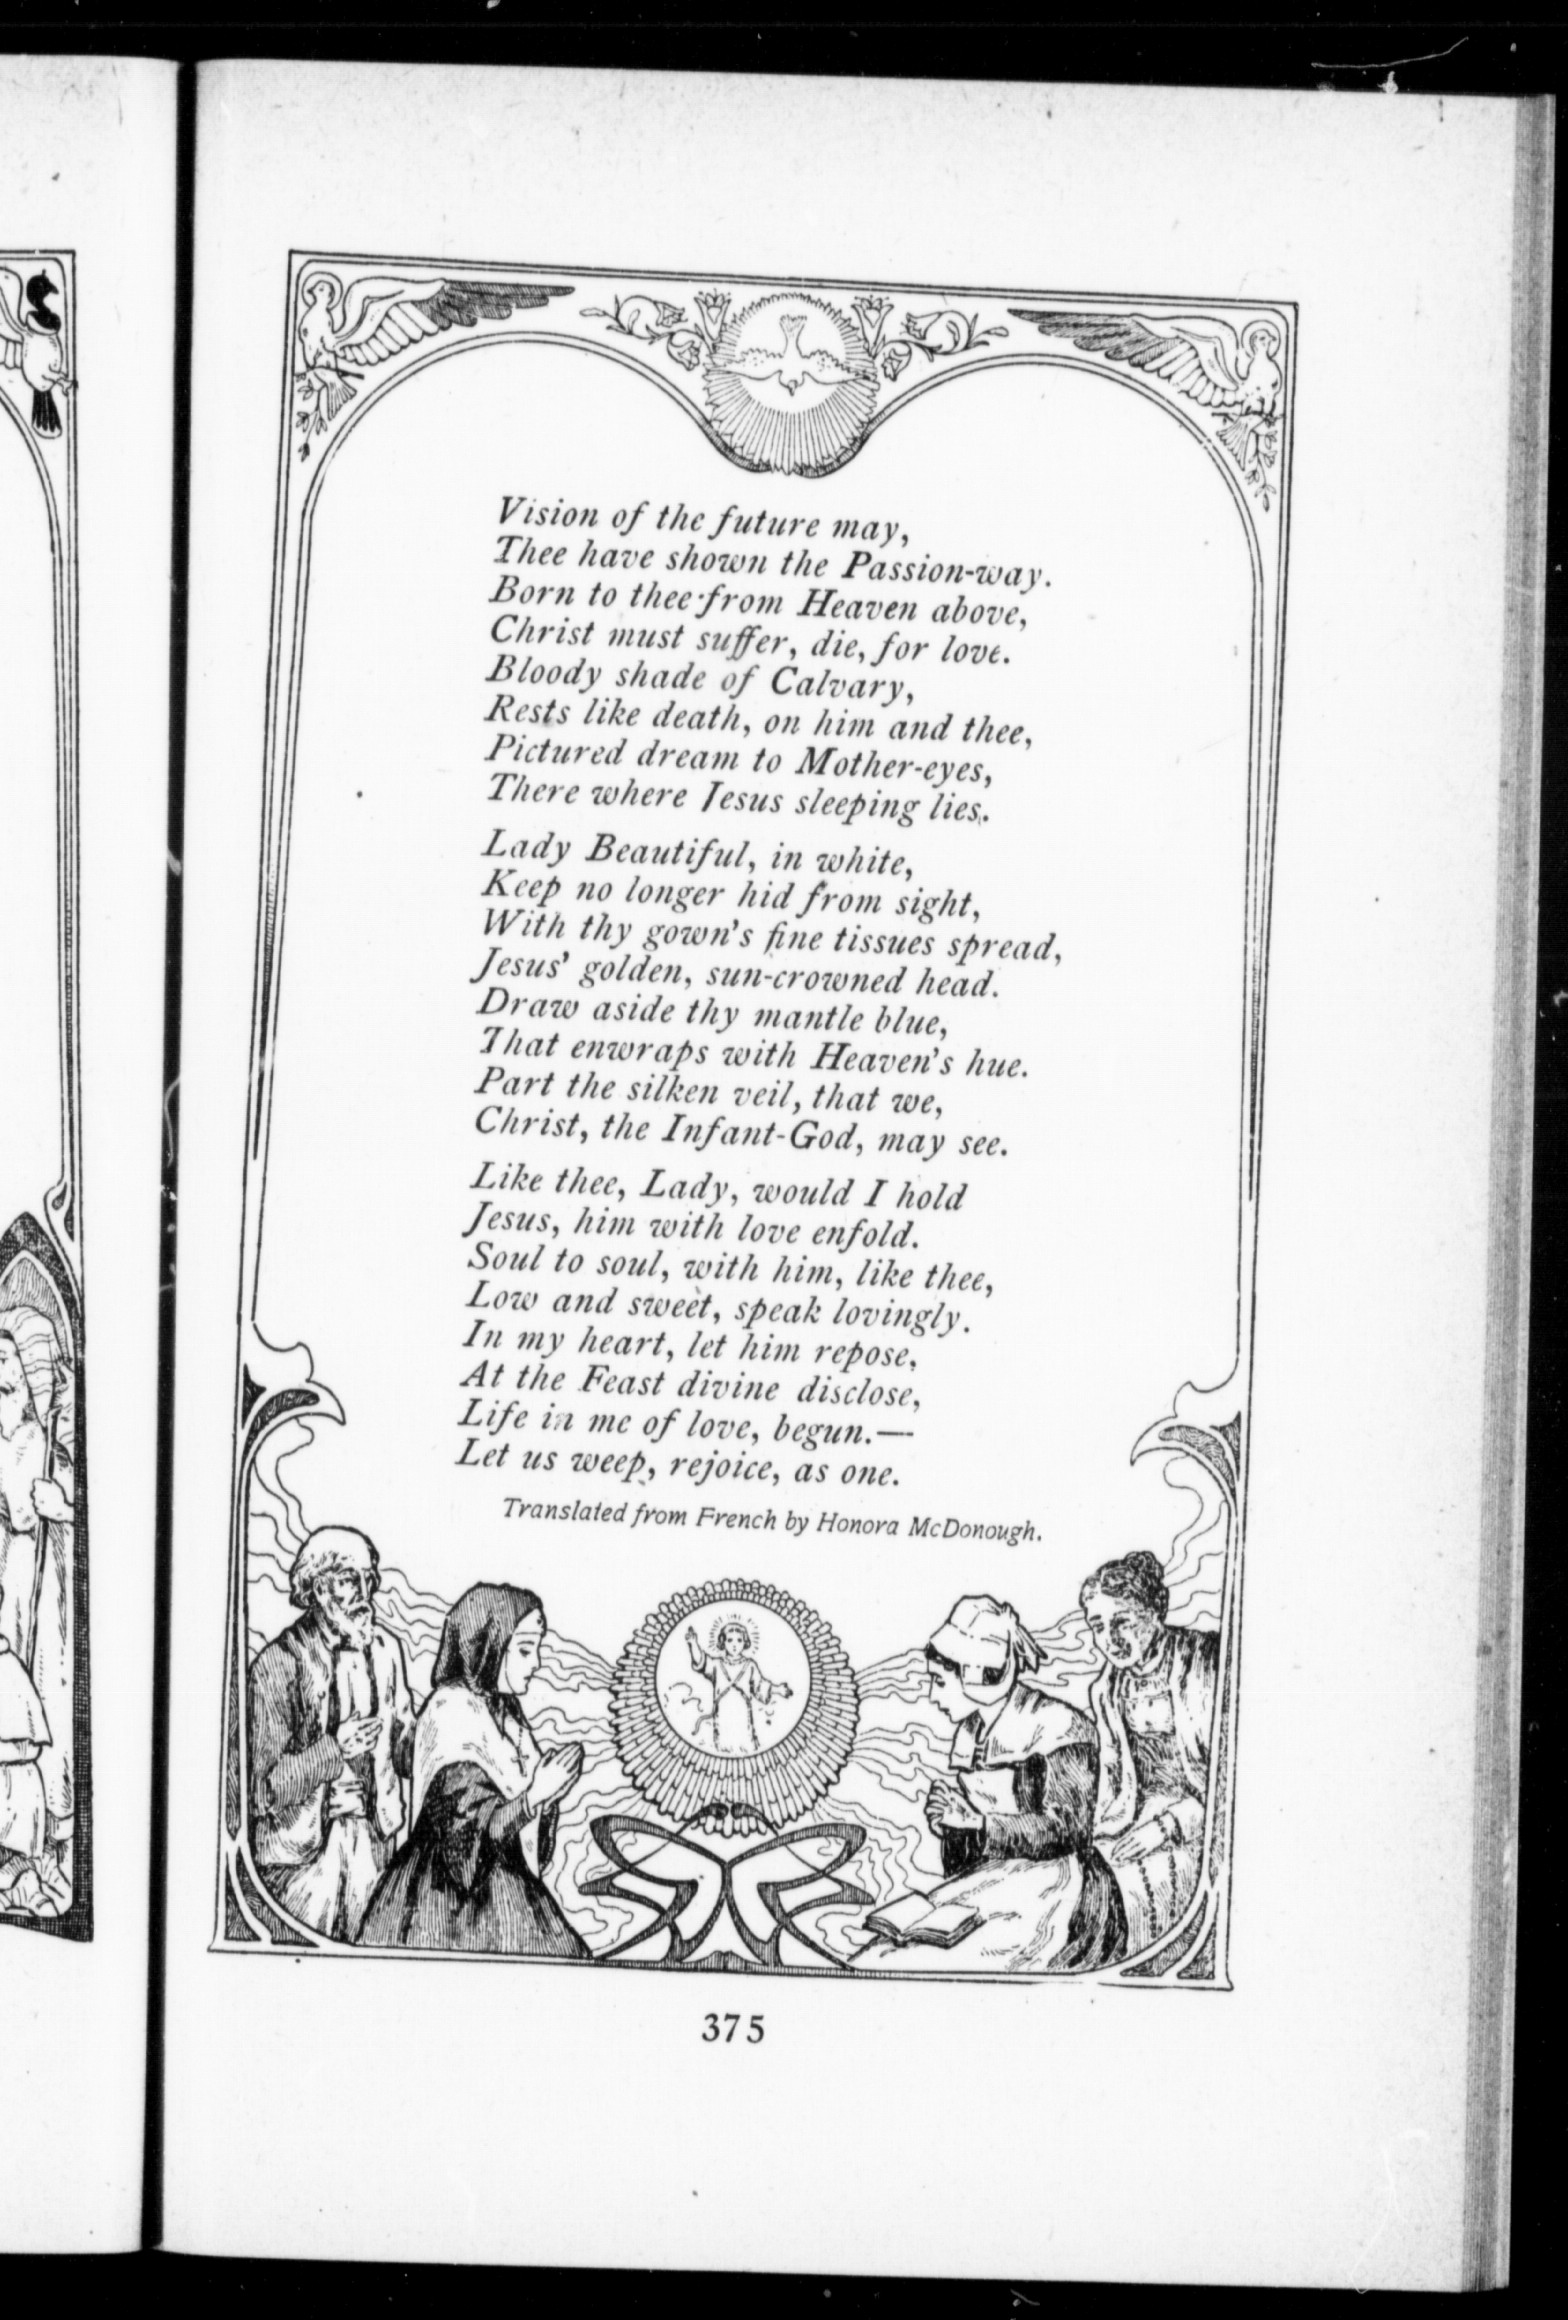 Vision of the future may,
Thee have shown the Passion-way.
Born to thee from Heaven above,
Christ must suffer, die, for love.
Bloody shade of Calvary,
Rests like death, on him and thee,
Pictured dream to Mother-eyes,
There where Jesus sleeping lies.
Lady Beautiful, in white,
Keep no longer hid from sight,
With thy gown's fine tissues spread,
Jesus' golden, sun-crowned head.
Draw aside thy mantle blue,
That enwraps with Heaven's hue.
Part the silken veil, that we,
Christ, the Infant-God, may see.
Like thee, Lady, would I hold
Jesus, him with love enfold.
Soul to soul, with him, like thee,
Low and sweet, speak lovingly.
In my heart, let him repose,
At the Feast divine disclose,
Life in me of love, begun.—
Let us weep, rejoice, as one.
Translated from French by Honora McDonough.
375